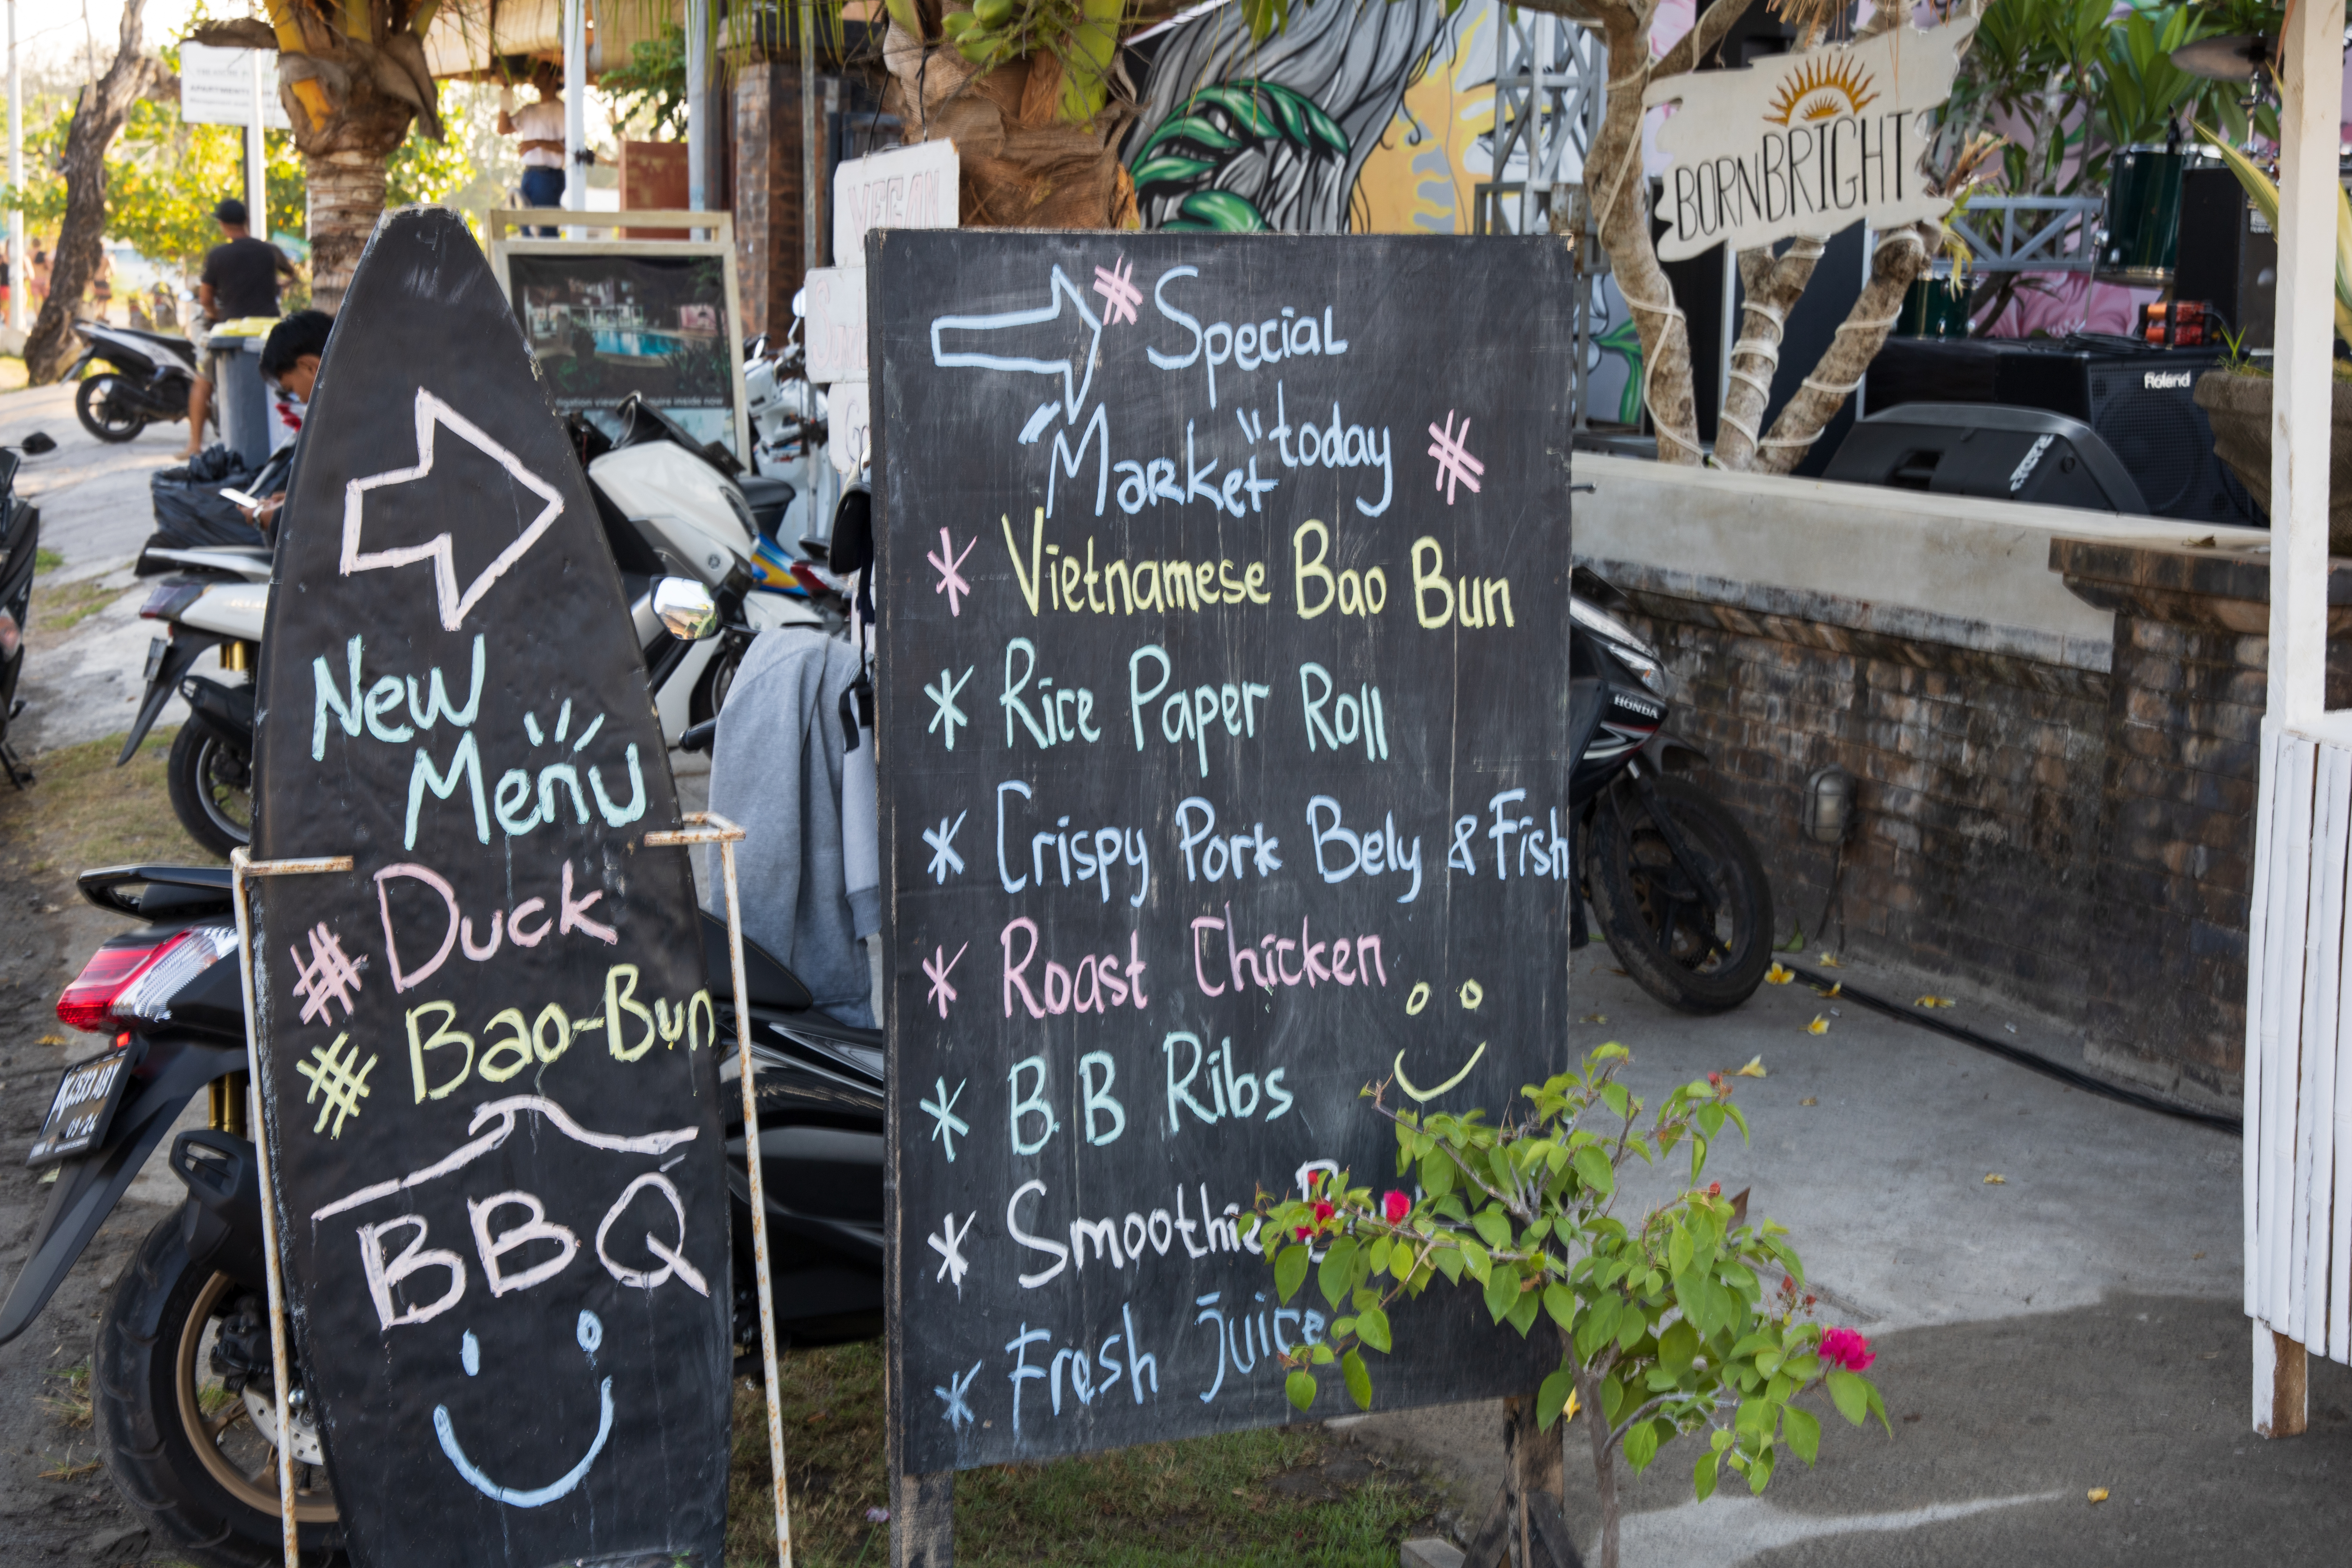 APARTMENTS
VEGAN
BORNBRIGHT
Roland
HONDA
New
Menu
# Duck
# Bao-Bun
BBQ
# Special
"Market" today #
* Vietnamese Bao Bun
* Rice Paper Roll
* Crispy Pork Bely & Fish
* Roast Chicken
* B.B Ribs
* Smoothie
* Fresh Juice
09·24